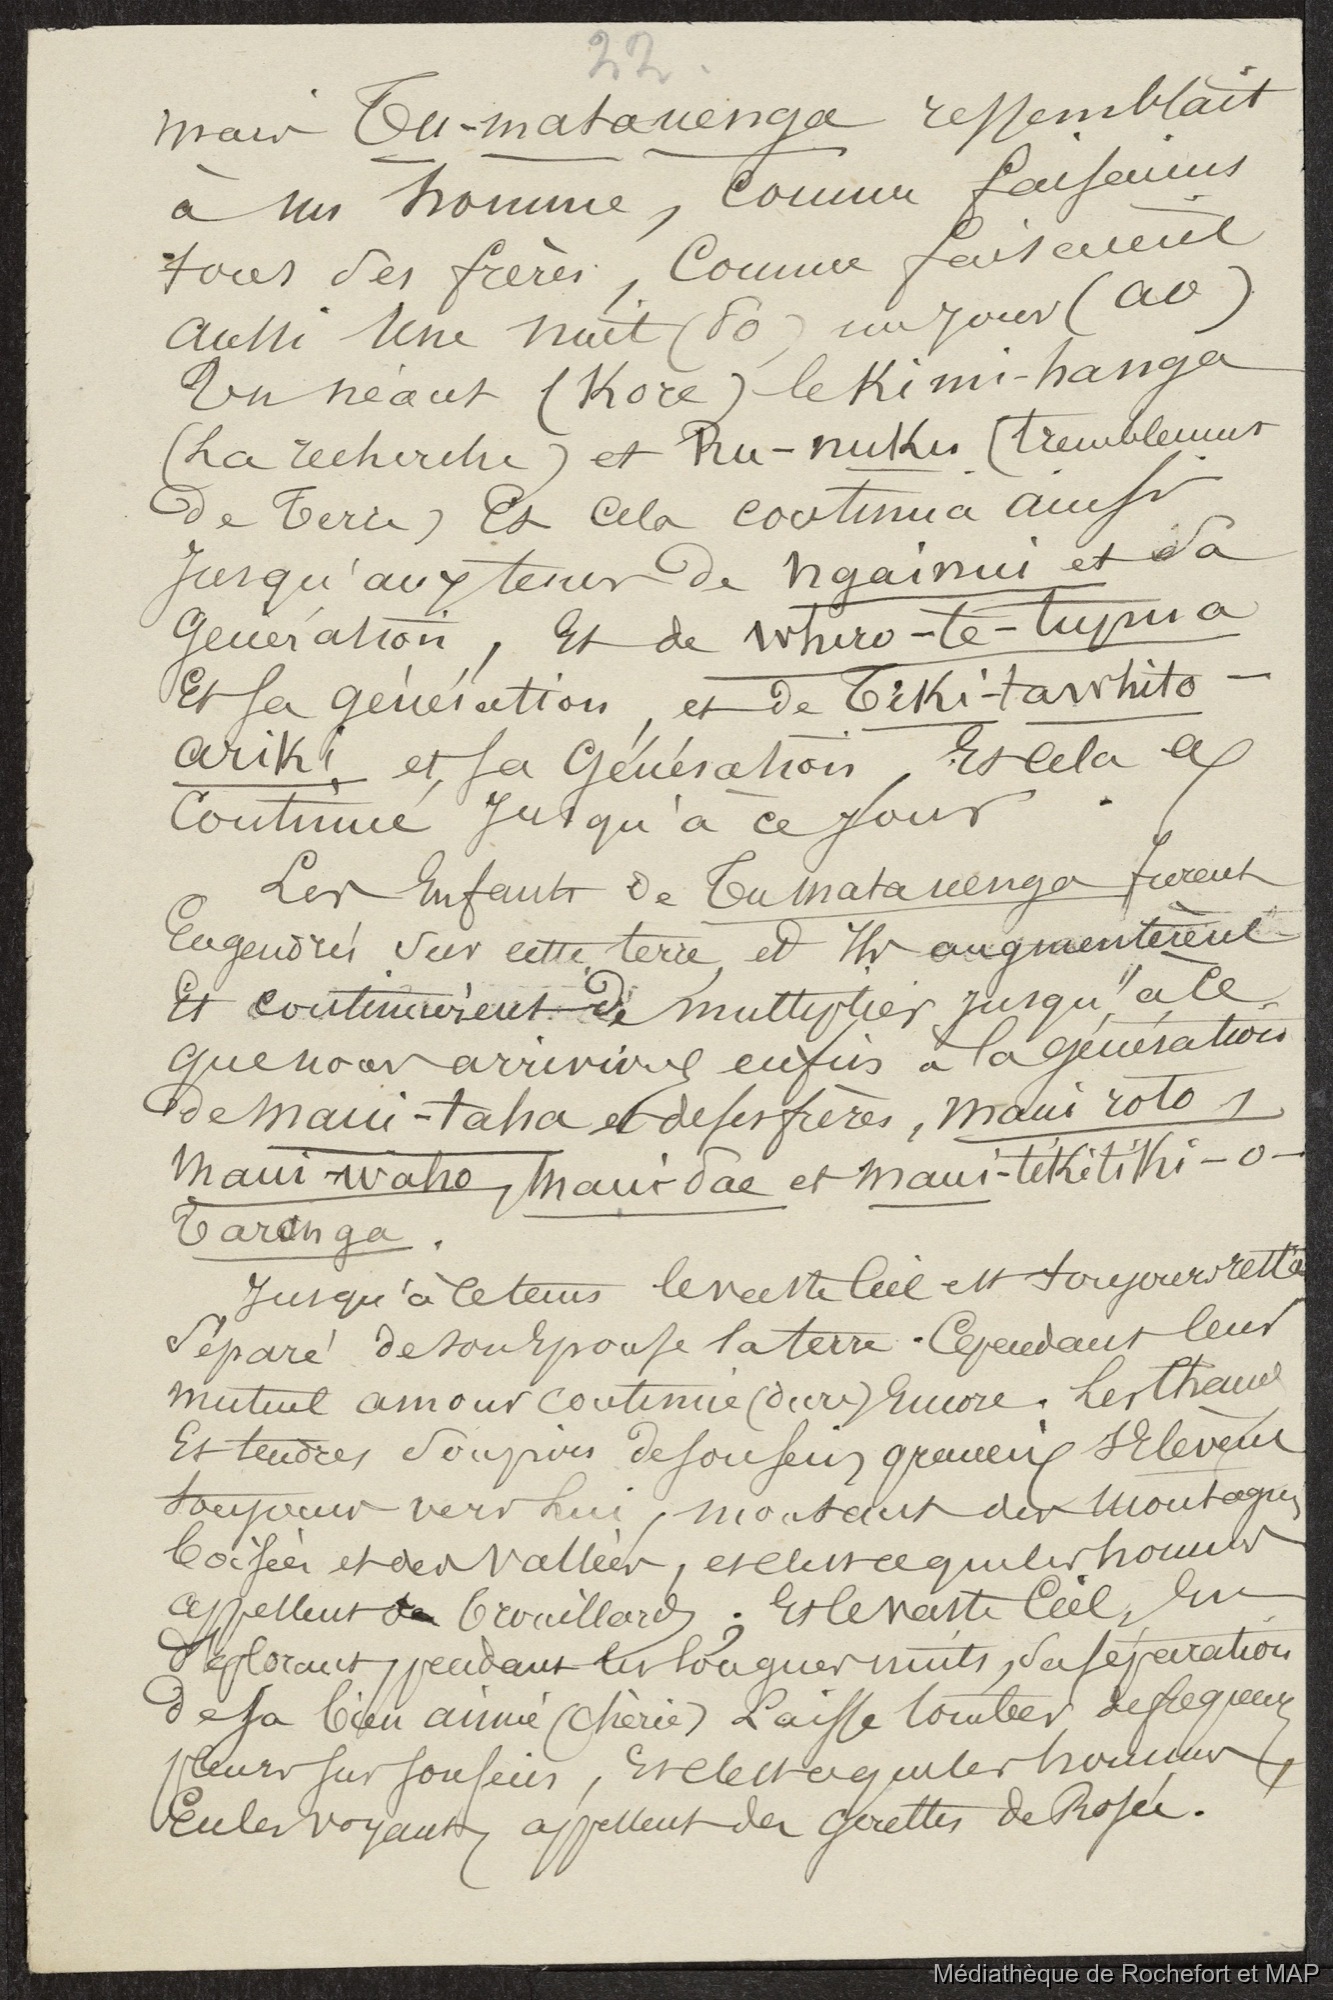 22.
mais Tu-matauenga ressemblait
à un homme, comme faisaient
tous ses frères, Comme faisaient
aussi Une nuit (Po) un jour (ao)
Un néant (Kore) le Kimi-hanga
(La recherche) et Ru-nuku (tremblement
de Terre) Et cela continua ainsi
jusqu'aux tems de ngainui et sa
Génération, Et de whiro-te-tupua
Et sa génération, et de Tiki-tawhito-
ariki et sa Génération, Et cela a
Continué Jusqu'à ce jour.
Les Enfants de Tumatauenga furent
Engendrés sur cette terre et Ils augmentèrent
Et continuèrent de multiplier jusqu'à ce
que nous arrivions enfin à la génération
de Maui-taha et de ses frères, Maui roto,
Maui-waho, Maui-pae et Maui-tikitiki-o-
Taranga.
Jusqu'à ce tems le vaste Ciel est toujours resté
Séparé de son Epouse la terre. Cependant leur
mutuel amour continue (dure) Encore. Les
Et tendres Soupirs de son sein s'Elèvent
toujours vers Lui, montant des Montagnes
boisées et des Vallées, et c'est ce que les hommes
appellent brouillards; Et le vaste Ciel, En
déplorant, pendant les longues nuits, sa séparation
de sa bien aimée (Chérie) Laisse tomber de fréquents
pleurs sur son sein, Et c'est ce que les hommes,
En les voyant, appellent des gouttes de Rosée.
Médiathèque de Rochefort et MAP